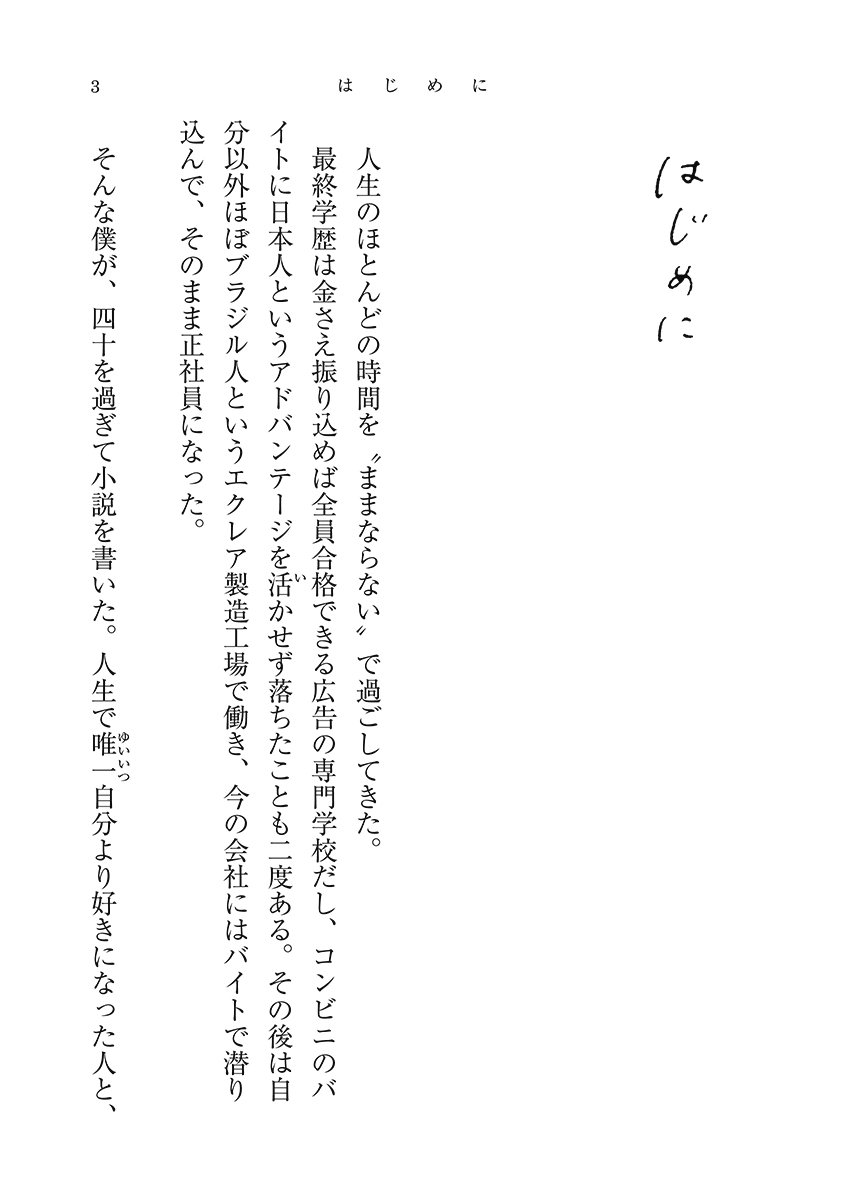 3
はじめに
はじめに
人生のほとんどの時間を〝ままならない〟で過ごしてきた。
最終学歴は金さえ振り込めば全員合格できる広告の専門学校だし、コンビニのバ
イトに日本人というアドバンテージを活かせず落ちたことも二度ある。その後は自
い
分以外ほぼブラジル人というエクレア製造工場で働き、今の会社にはバイトで潜り
込んで、そのまま正社員になった。
そんな僕が、四十を過ぎて小説を書いた。人生で唯一自分より好きになった人と、
ゆいいつ